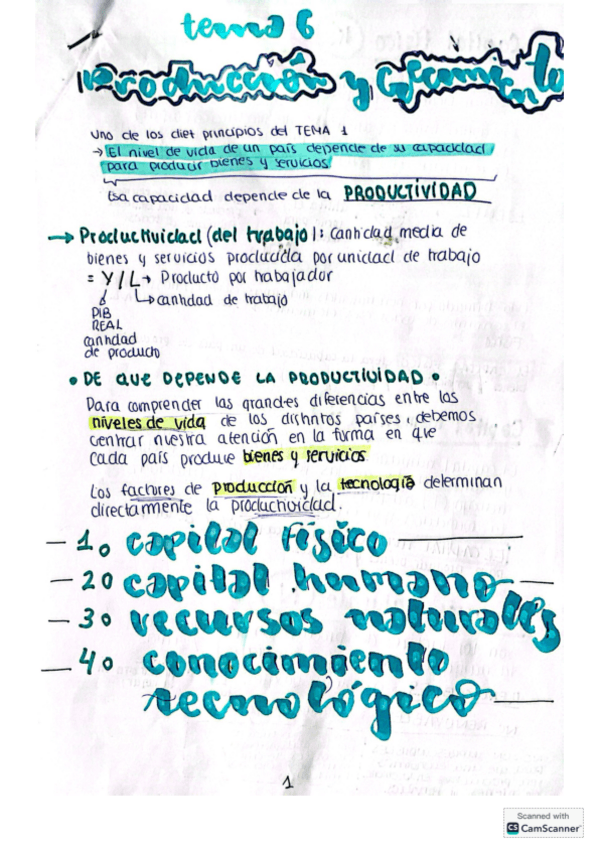 tema 6
Producción y Crecimiento
Uno de los diet principios del TEMA 1
→ El nivel de vida de un país depende de su capacidad
para producir bienes y servicios
Esa capacidad depende de la PRODUCTIVIDAD
→ Productividad (del trabajo): Cantidad media de
bienes y servicios producida por unidad de trabajo
= Y/L → Producto por trabajador
↳ cantidad de trabajo
PIB
REAL
cantidad
de producto
• DE QUE DEPENDE LA PRODUCTIVIDAD •
Para comprender las grandes diferencias entre los
niveles de vida de los distintos países, debemos
centrar nuestra atención en la forma en que
cada país produce bienes y servicios
Los factores de producción y la tecnología determinan
directamente la productividad.
— 1o capital físico —
— 2o capital humano —
— 3o recursos naturales
— 4o conocimiento
tecnológico —
1
Scanned with
CS CamScanner